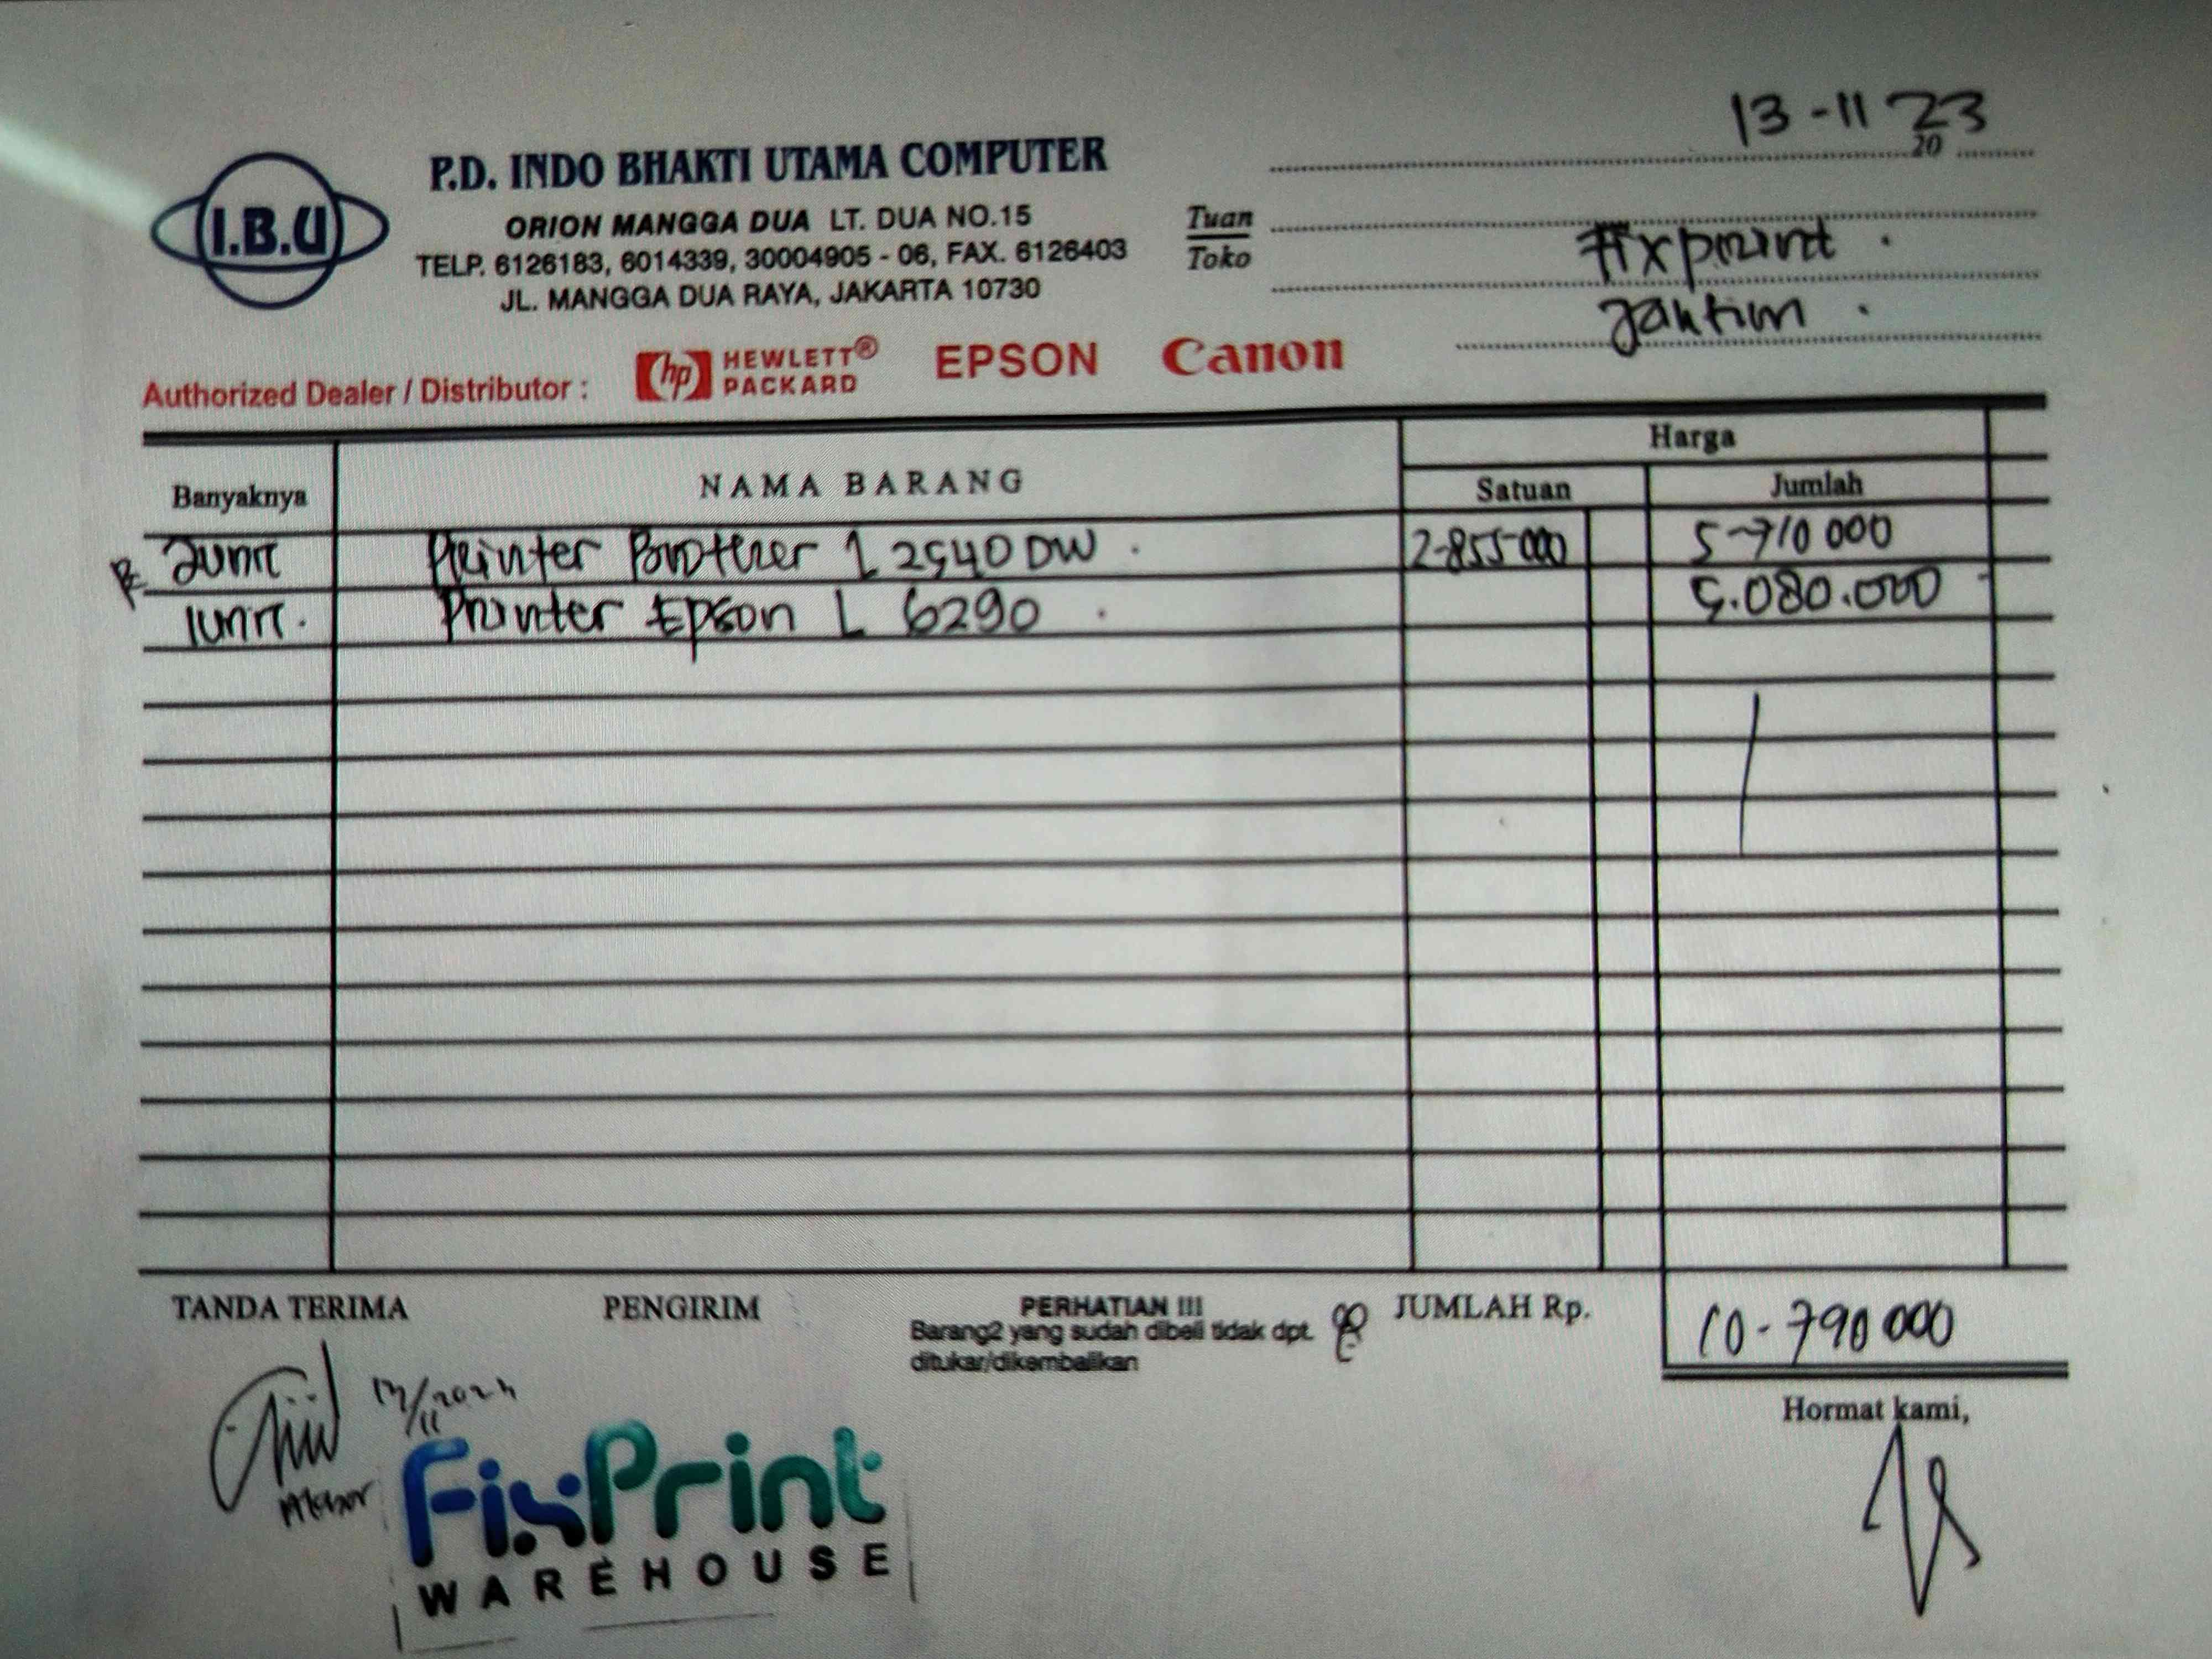 13-11 2023
I.B.U
P.D. INDO BHAKTI UTAMA COMPUTER
ORION MANGGA DUA LT. DUA NO.15
TELP. 6126183, 6014339, 30004905 - 06, FAX. 6126403
JL. MANGGA DUA RAYA, JAKARTA 10730
Tuan
Toko
Fixprint.
Jaktim.
Authorized Dealer / Distributor :
hp HEWLETT® PACKARD
EPSON
Canon
Banyaknya NAMA BARANG Harga
Satuan Jumlah
2unit Printer Brother L2540DW. 2-855-000 5-710 000
1unit. Printer Epson L 6290. 5.080.000
TANDA TERIMA PENGIRIM PERHATIAN !!! JUMLAH Rp. 10-790 000
Barang2 yang sudah dibeli tidak dpt.
ditukar/dikembalikan
Hormat kami,
FixPrint
WAREHOUSE